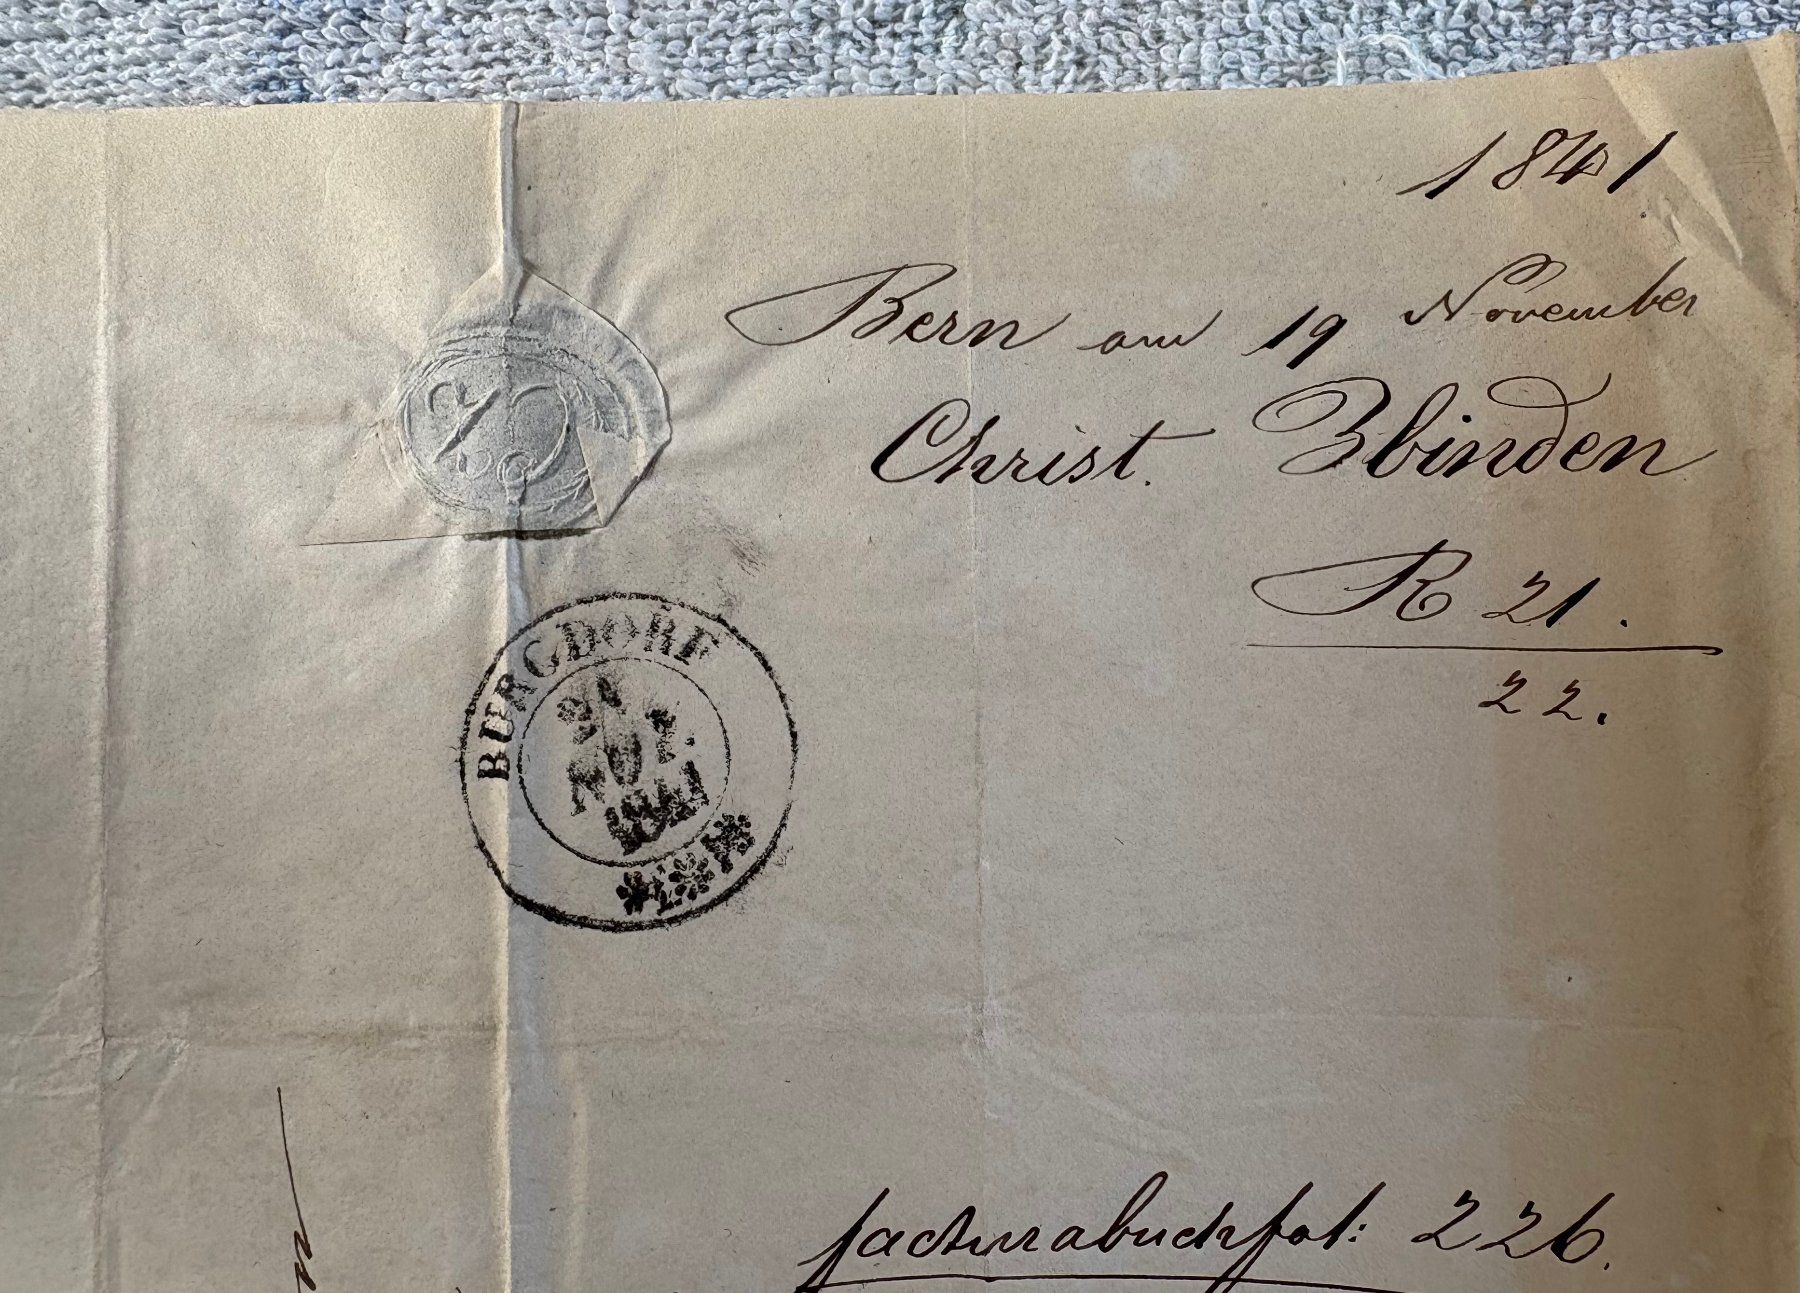 1841
Bern am 19 November
Christ. Zbinden
R 21.
22.
BURGDORF
NOV.
1841
facturabuchfol: 226.